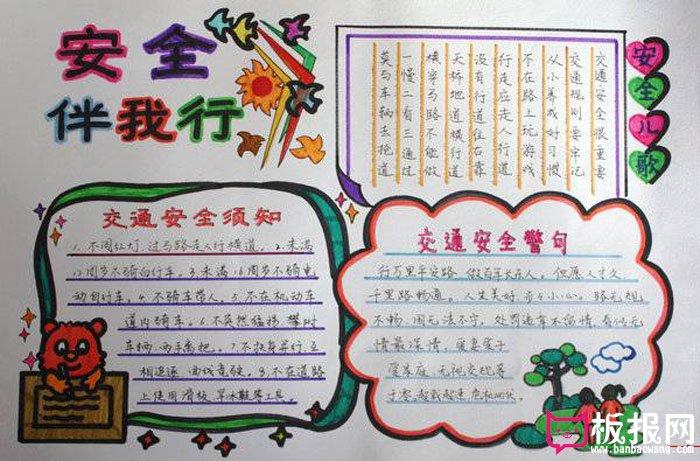 安全
伴我行
安全儿歌
交通安全很重要
交通规则要牢记
从小养成好习惯
不在路上玩游戏
行走应走人行道
没有行道往右靠
天桥地道横行道
横穿马路不能做
一慢二看三通过
莫与车辆去抢道
交通安全须知
1.不闯红灯,过马路走人行横道。2.未满
12周岁不骑自行车。3.未满16周岁不骑电
动自行车。4.不骑车带人。5.不在机动车
道内骑车。6.不突然猛拐 攀附
车辆 两手离把。7.不扶身并行互
相追逐 曲线竞驶。8.不在道路
上使用滑板 旱冰鞋等工具。
交通安全警句
行万里平安路 做百年长乐人。但愿人长久
千里路畅通。人生美好 步步小心。路无规
不畅 国无法不宁。处罚违章不留情 看似无
情最深情。
板报网
www.banbaowang.com